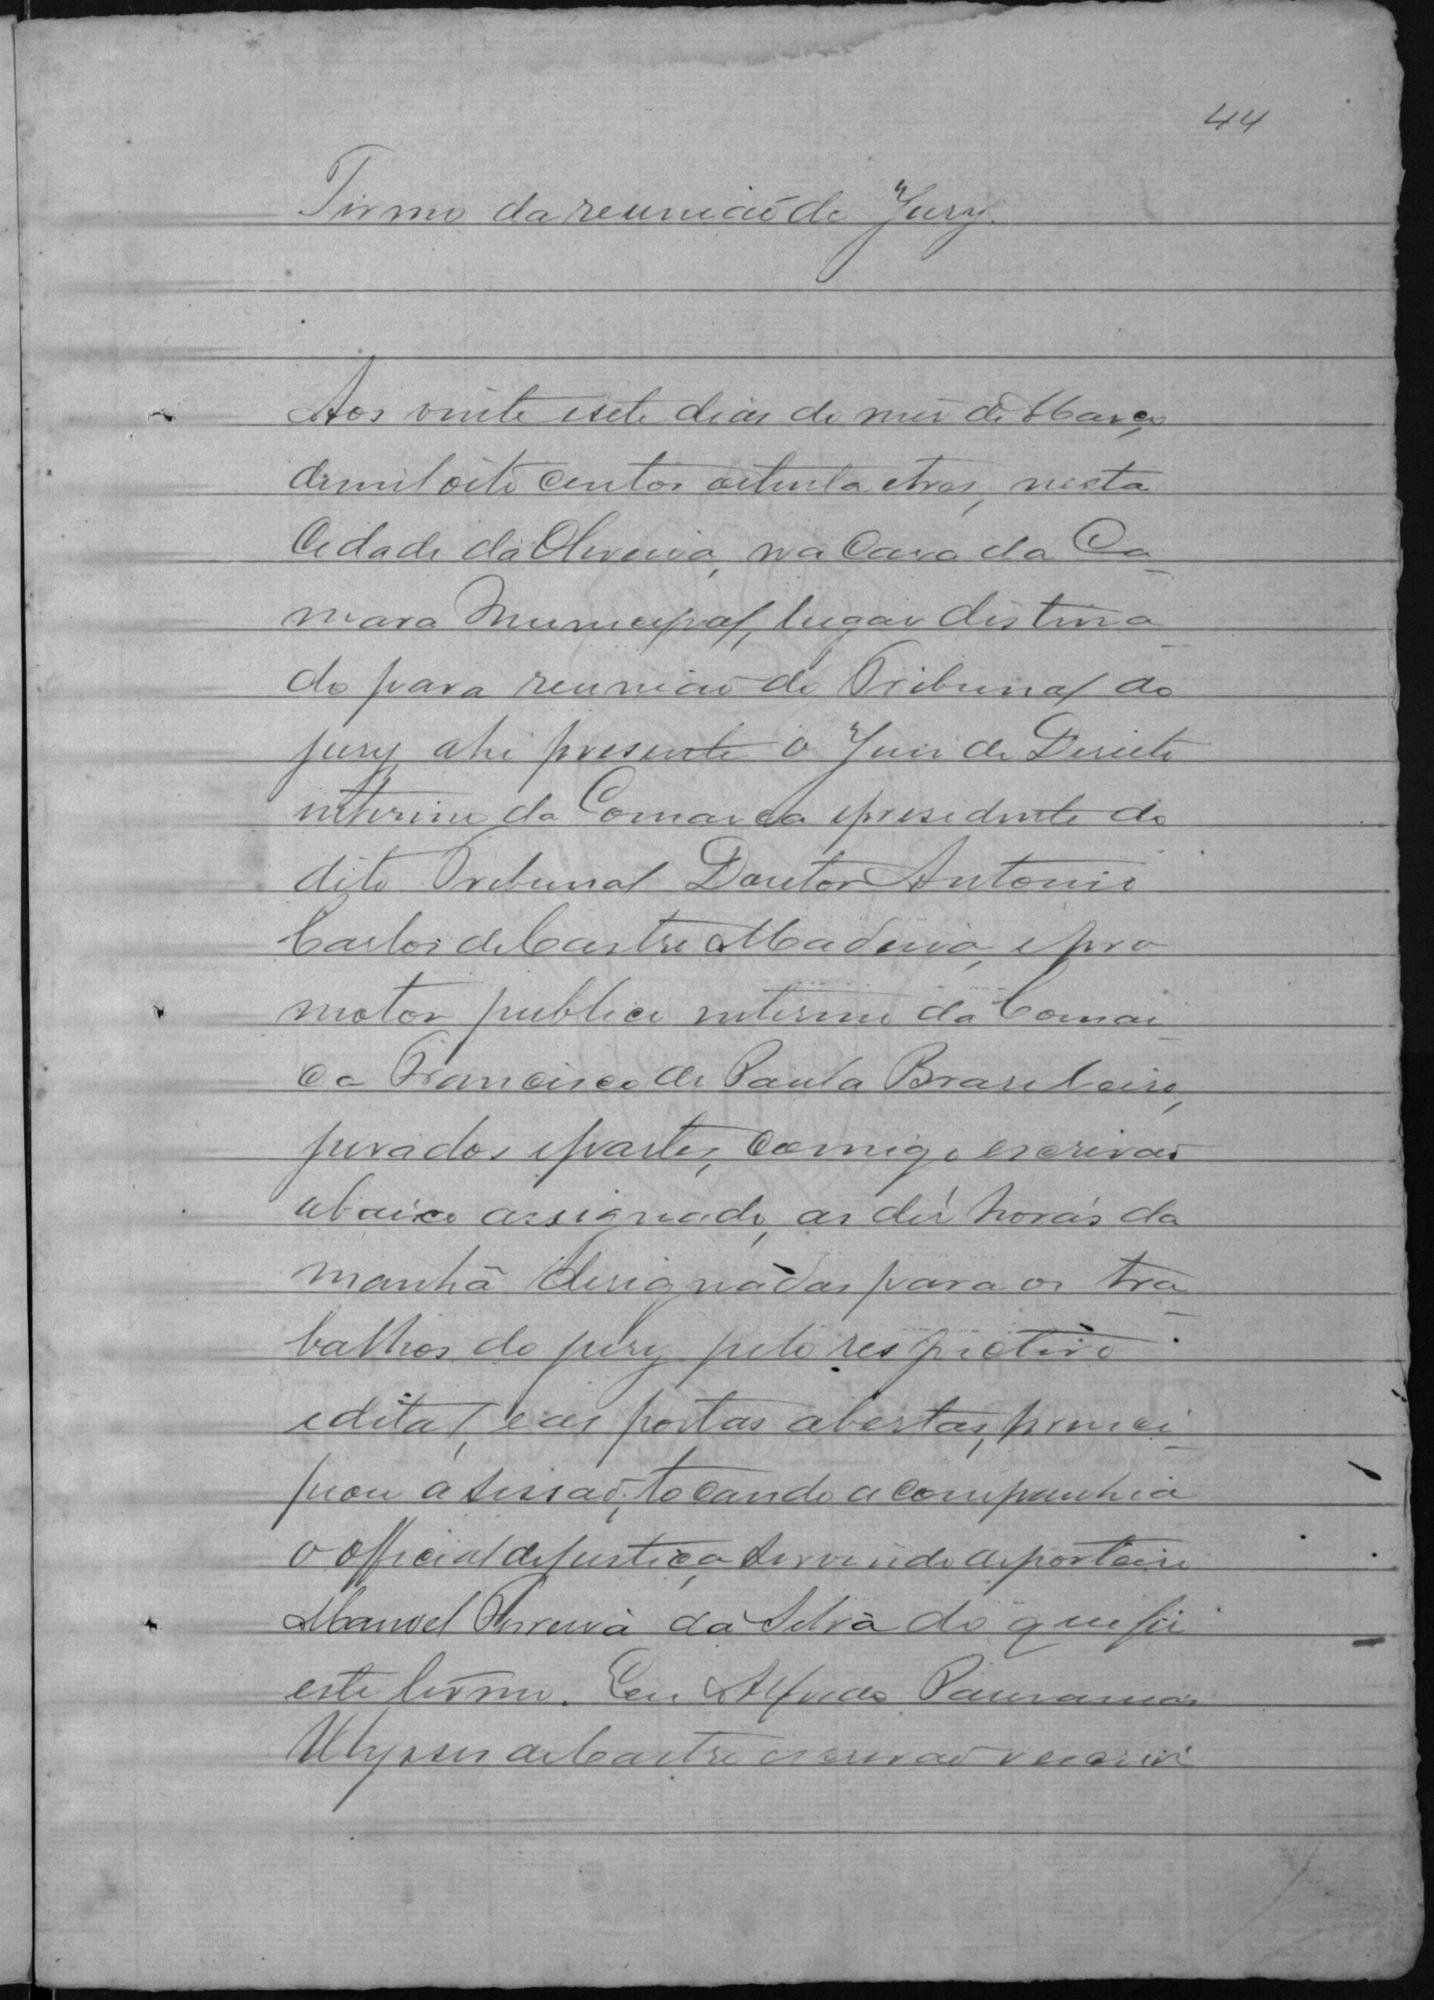 44
Termo da reunião do Jury.
Aos vinte e sete dias do mes de Março
de mil oito centos oitenta e tres, nesta
Cidade da Oliveira, na Casa da Ca_
mara Municipal, lugar destina_
do para reunião do Tribunal do
jury ahi presente o Juis de Direito
interino da Comarca e presidente do
dito Tribunal Doutor Antonio
Carlos de Castro Madeira, e pro
motor publico interino da Comar_
ca Francisco de Paula Brasileiro,
jurados e partes, comigo escrivão
abaixo assignado, as dés horas da
manhã designadas para os tra_
balhos do jury pelo respectivo
edital, e as portas abertas, princi_
piou a sessão, tocando a companhia
o official de justiça servindo de porteiro
Manoel Ferreira da Silva do que fis
este termo. Eu Alfredo Pausanias
Ulysses de Castro escrivão o escrivi